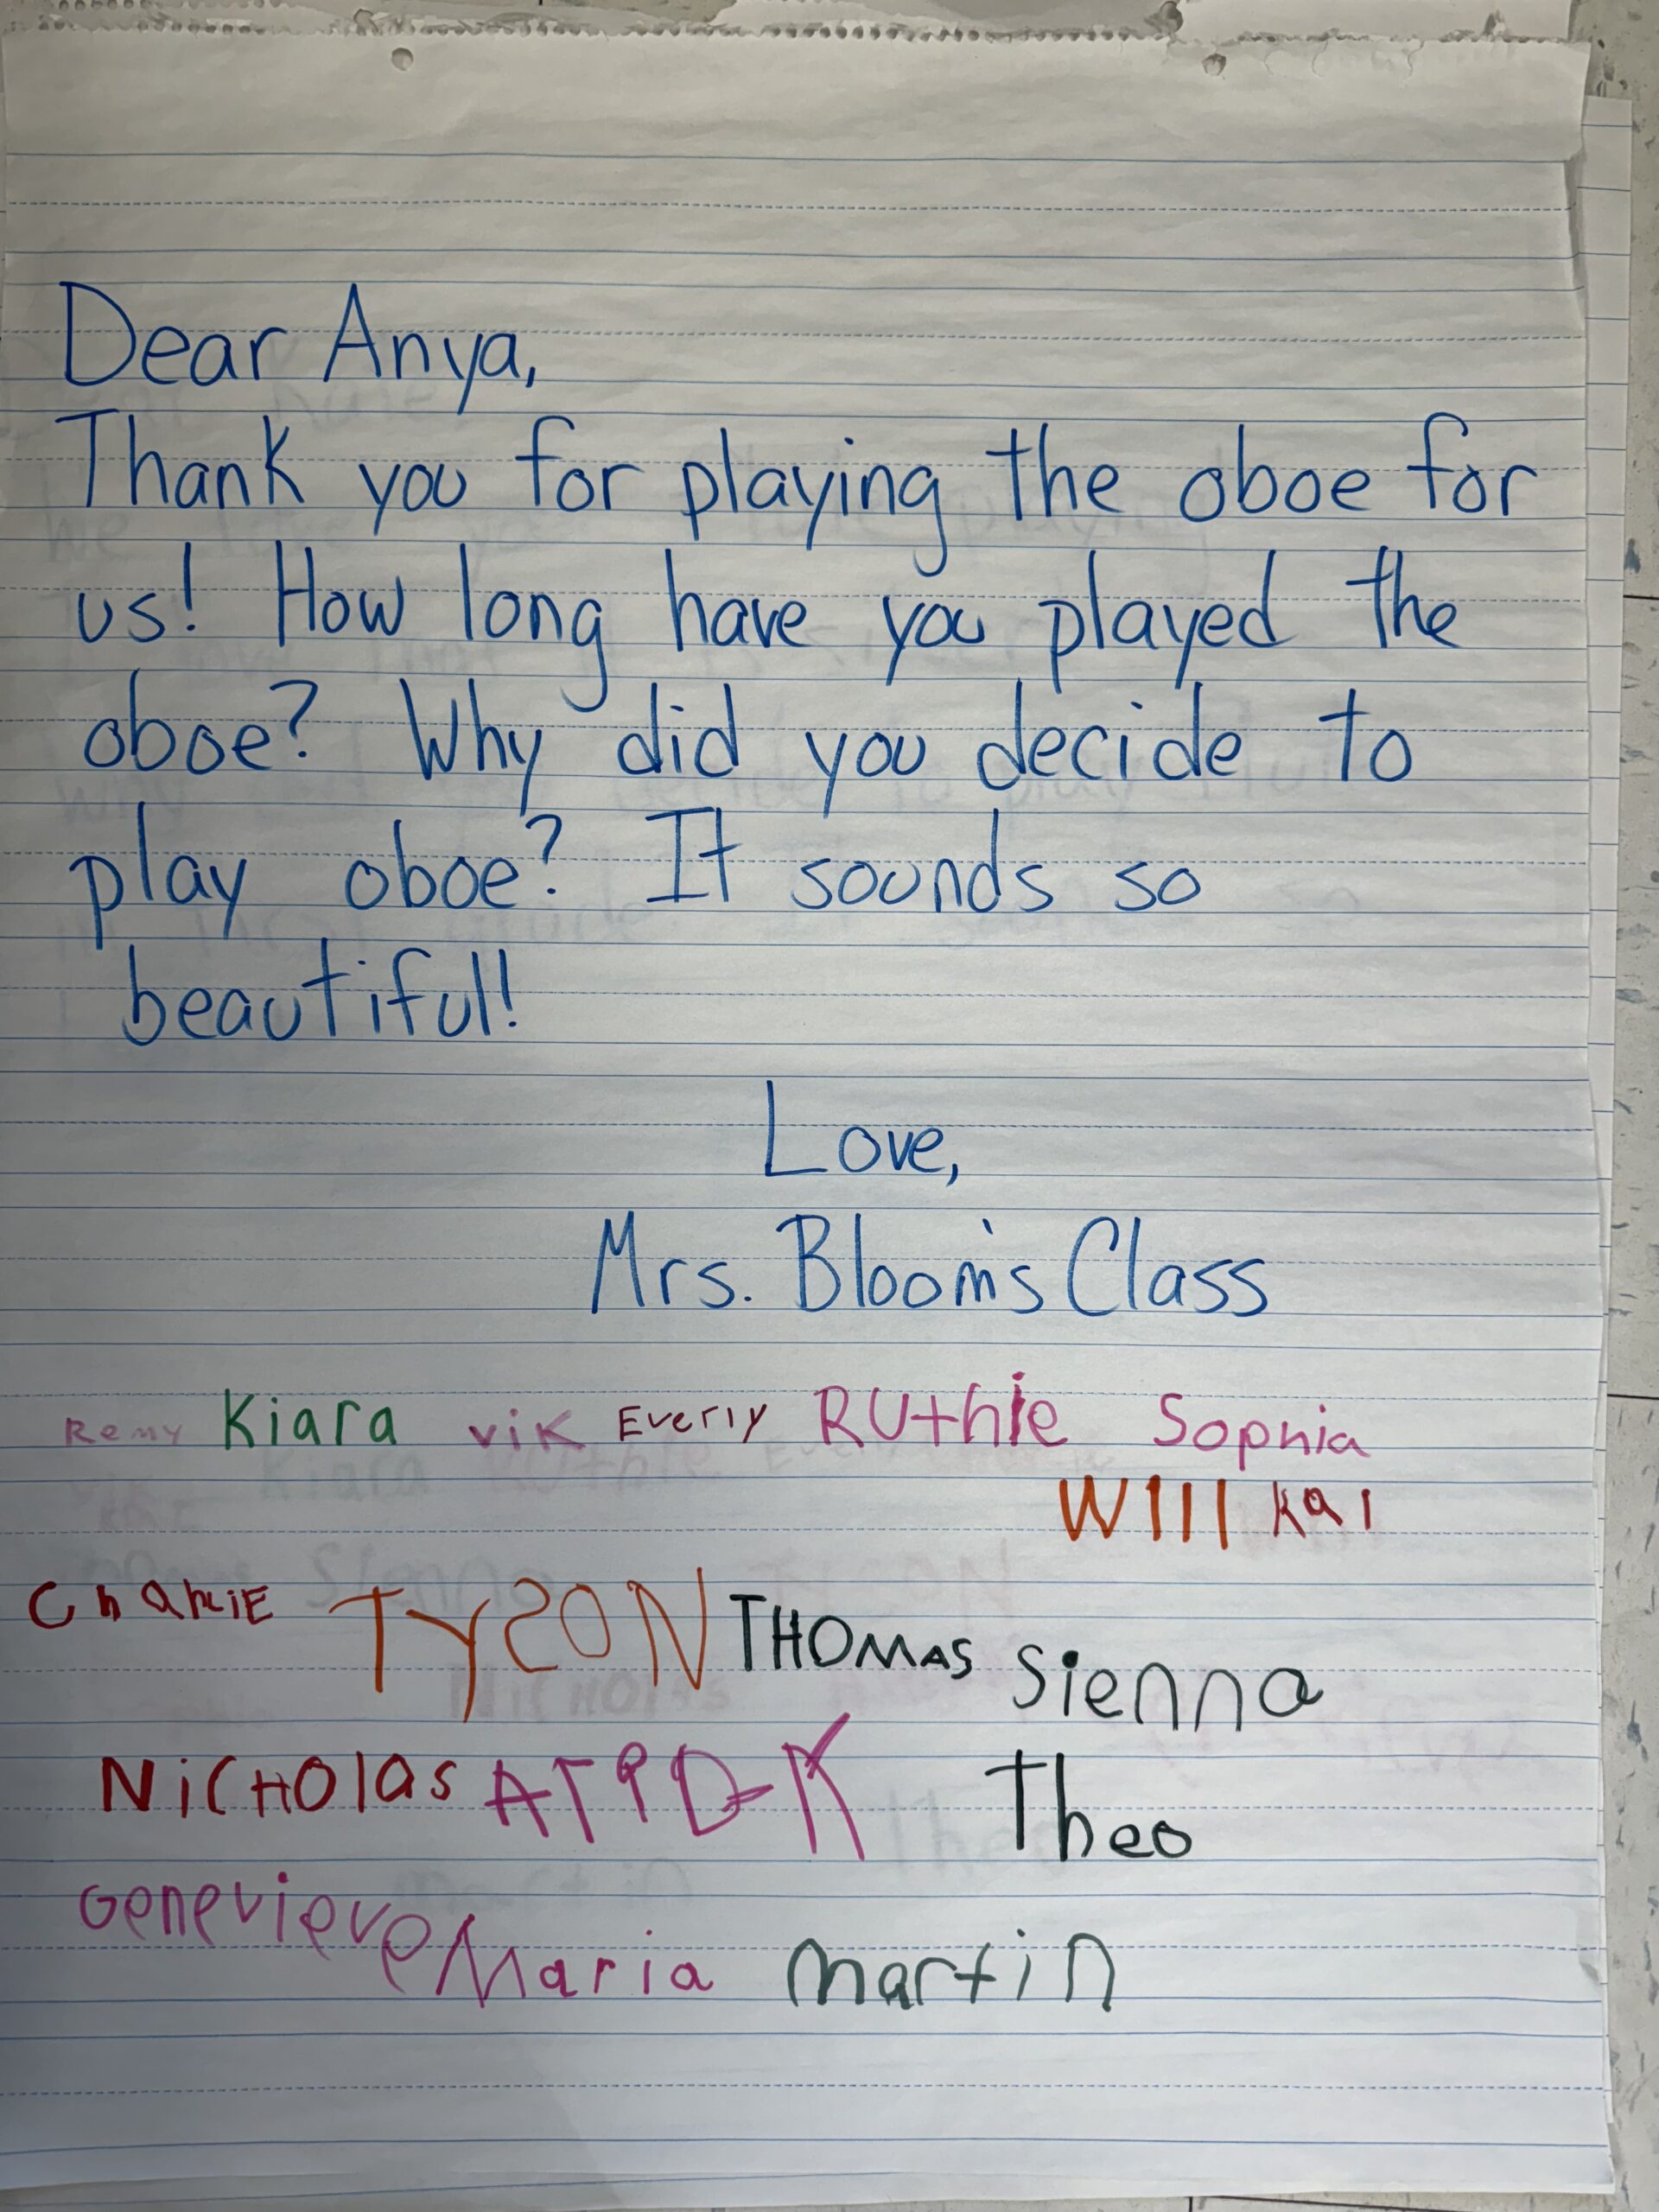 Dear Anya,
Thank you for playing the oboe for
us! How long have you played the
oboe? Why did you decide to
play oboe? It sounds so
beautiful!
Love,
Mrs. Bloom's Class
Remy Kiara vik Everly RUthie Sophia
Will kai
CharliE TYSON THOMAS Sienna
NiCHOlas Theo
Genevieve Maria martin